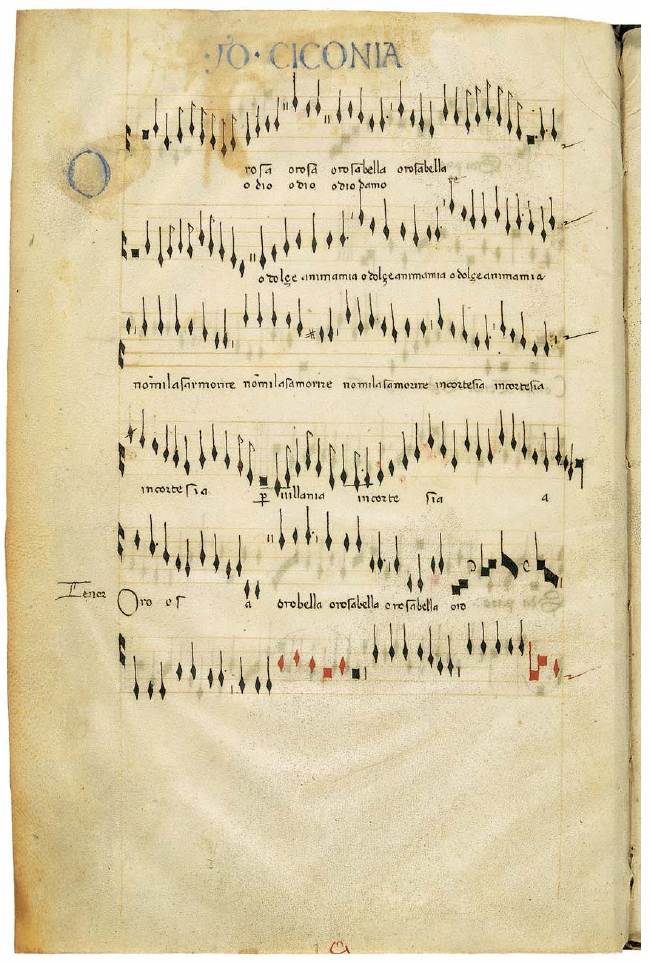 ·JO· CICONIA
O rosa orosa orosabella orosabella
o dio o dio odio damo re
o dolçe animamia o dolçeanimamia o dolçeanimamia
nōmilasarmorire nōmilasamorire nomilasamorire incortesia incortesia
incortesia p̄ uillania incorte sia a
Tenor Oro es a orobella orosabella orosabella oro